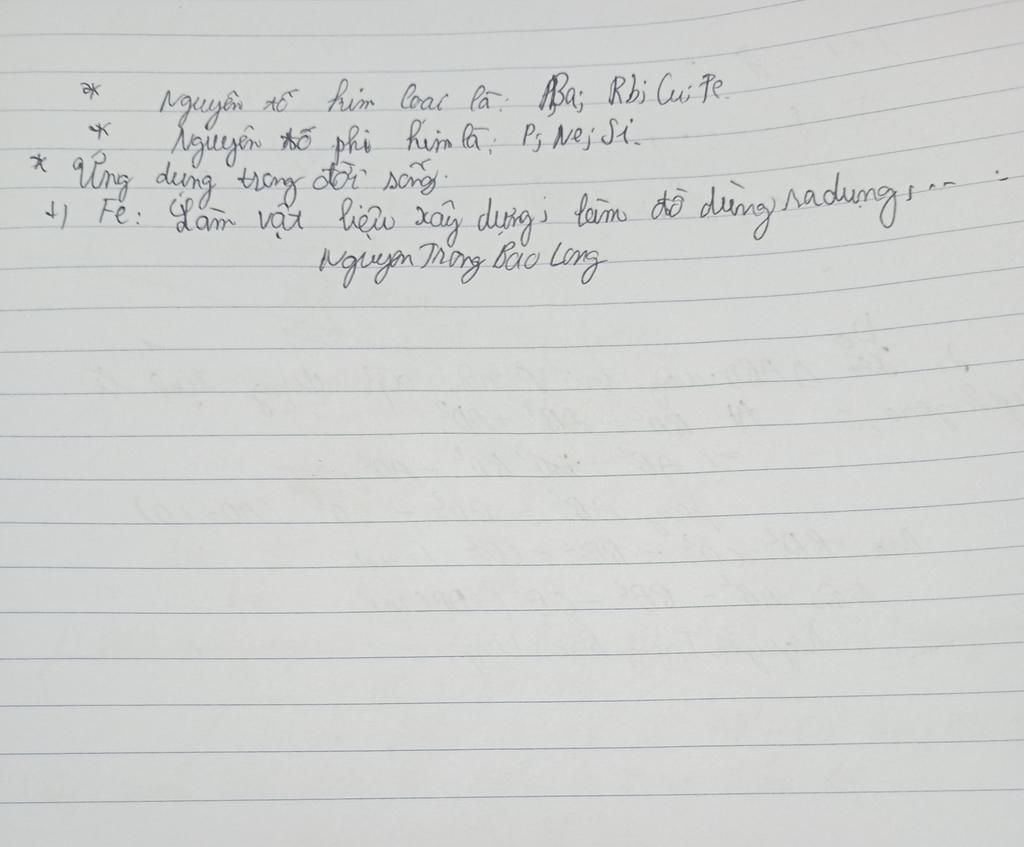 * Nguyên tố kim loại là: Ba; Rb; Cu; Fe.
* Nguyên tố phi kim là: P; Ne; Si.
* Ứng dụng trong đời sống:
+) Fe: Làm vật liệu xây dựng; làm đồ dùng sa dụng, ...
Nguyen Trong Bao Long